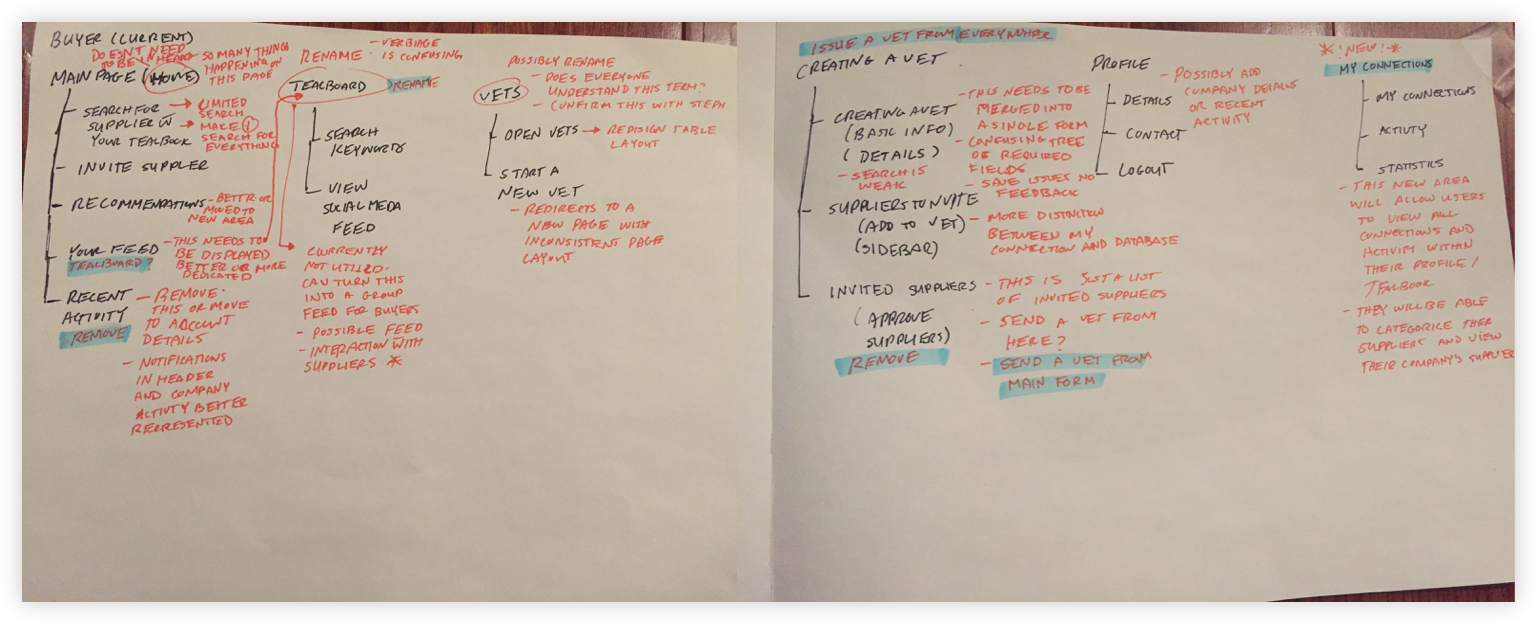 BUYER (CURRENT)
DOESN'T NEED
TO BE IN HEADER
MAIN PAGE (HOME)
- SO MANY THINGS
HAPPENING ON
THIS PAGE
SEARCH FOR
SUPPLIER IN
YOUR TEALBOOK
LIMITED
SEARCH
MAKE 1
SEARCH FOR
EVERYTHING
INVITE SUPPLIER
RECOMMENDATIONS
- BETTR OR
MOVED TO
NEW AREA
YOUR FEED
TEALBOARD?
- THIS NEEDS TO
BE DISPLAYED
BETTER OR MORE
DEDICATED
RECENT
ACTIVITY
REMOVE
- REMOVE
THIS OR MOVE
TO ACCOUNT
DETAILS
- NOTIFICATIONS
IN HEADER
AND COMPANY
ACTIVITY BETTER
REPRESENTED
RENAME
- VERBIAGE
IS CONFUSING
TEALBOARD
RENAME
SEARCH
KEYWORDS
VIEW
SOCIAL MEDIA
FEED
CURRENTLY
NOT UTILIZED.
CAN TURN THIS
INTO A GROUP
FEED FOR BUYERS
- POSSIBLE FEED
- INTERACTION WITH
SUPPLIERS *
POSSIBLY RENAME
- DOES EVERYONE
UNDERSTAND THIS TERM?
- CONFIRM THIS WITH STEPH
VETS
OPEN VETS
REDISIGN TABLE
LAYOUT
START A
NEW VET
- REDIRECTS TO A
NEW PAGE WITH
INCONSISTENT PAGE
LAYOUT
ISSUE A VET FROM EVERYWHERE
CREATING A VET
CREATING A VET
(BASIC INFO)
(DETAILS)
- SEARCH IS
WEAK
- THIS NEEDS TO BE
MERGED INTO
A SINGLE FORM
- CONFUSING TREE
OF REQUIRED
FIELDS
- SAVE ISSUES NO
FEEDBACK
SUPPLIERS TO INVITE
(ADD TO VET)
(SIDEBAR)
- MORE DISTINCTION
BETWEEN MY
CONNECTION AND DATABASE
INVITED SUPPLIERS
(APPROVE
SUPPLIERS)
REMOVE
- THIS IS JUST A LIST
OF INVITED SUPPLIERS
- SEND A VET FROM
HERE?
- SEND A VET FROM
MAIN FORM
PROFILE
DETAILS
CONTACT
LOGOUT
- POSSIBLY ADD
COMPANY DETAILS
OR RECENT
ACTIVITY
* !NEW! *
MY CONNECTIONS
MY CONNECTIONS
ACTIVITY
STATISTICS
- THIS NEW AREA
WILL ALLOW USERS
TO VIEW ALL
CONNECTIONS AND
ACTIVITY WITHIN
THEIR PROFILE /
TEALBOOK
- THEY WILL BE ABLE
TO CATEGORICE THER
SUPPLIERS AND VIEW
THEIR COMPANY'S SUPPLIER